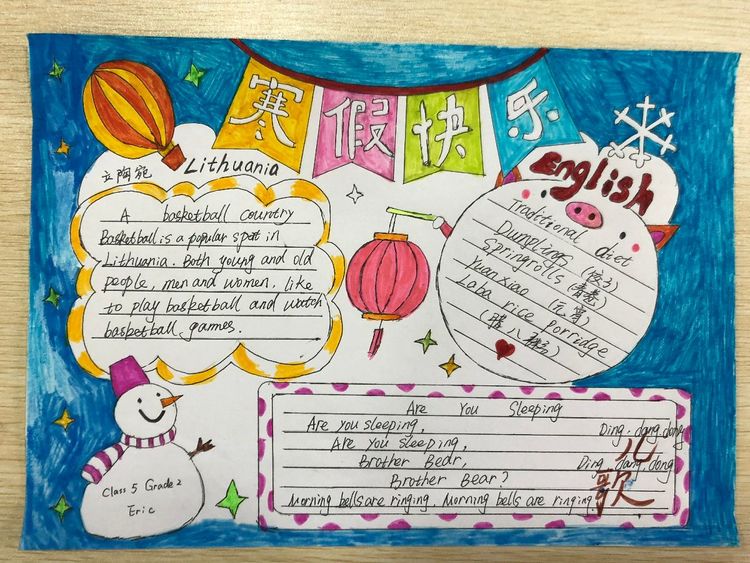 寒假快乐
立陶宛 Lithuania
A basketball country
Basketball is a popular spot in
Lithuania. Both young and old
people, men and women, like
to play basketball and watch
basketball games.
English
Traditional diet
Dumplings (饺子)
Springrolls (春卷)
Yuanxiao (元宵)
Laba rice porriage
(腊八粥)
Are You Sleeping
Are you sleeping, Ding. dang. dong
Are you sleeping,
Brother Bear, Ding. dang. dong
Brother Bear?
Morning bells are ringing. Morning bells are ringing.
儿歌
Class 5 Grade 2
Eric